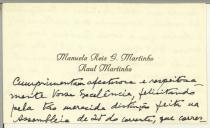 Manuela Reis G. Martinho
Raul Martinho
Cumprimentam afectuosa e respeitosa-
mente Vossa Excelência, felicitando
pela tão merecida distinção feita na
Assembleia de 25 do corrente, que